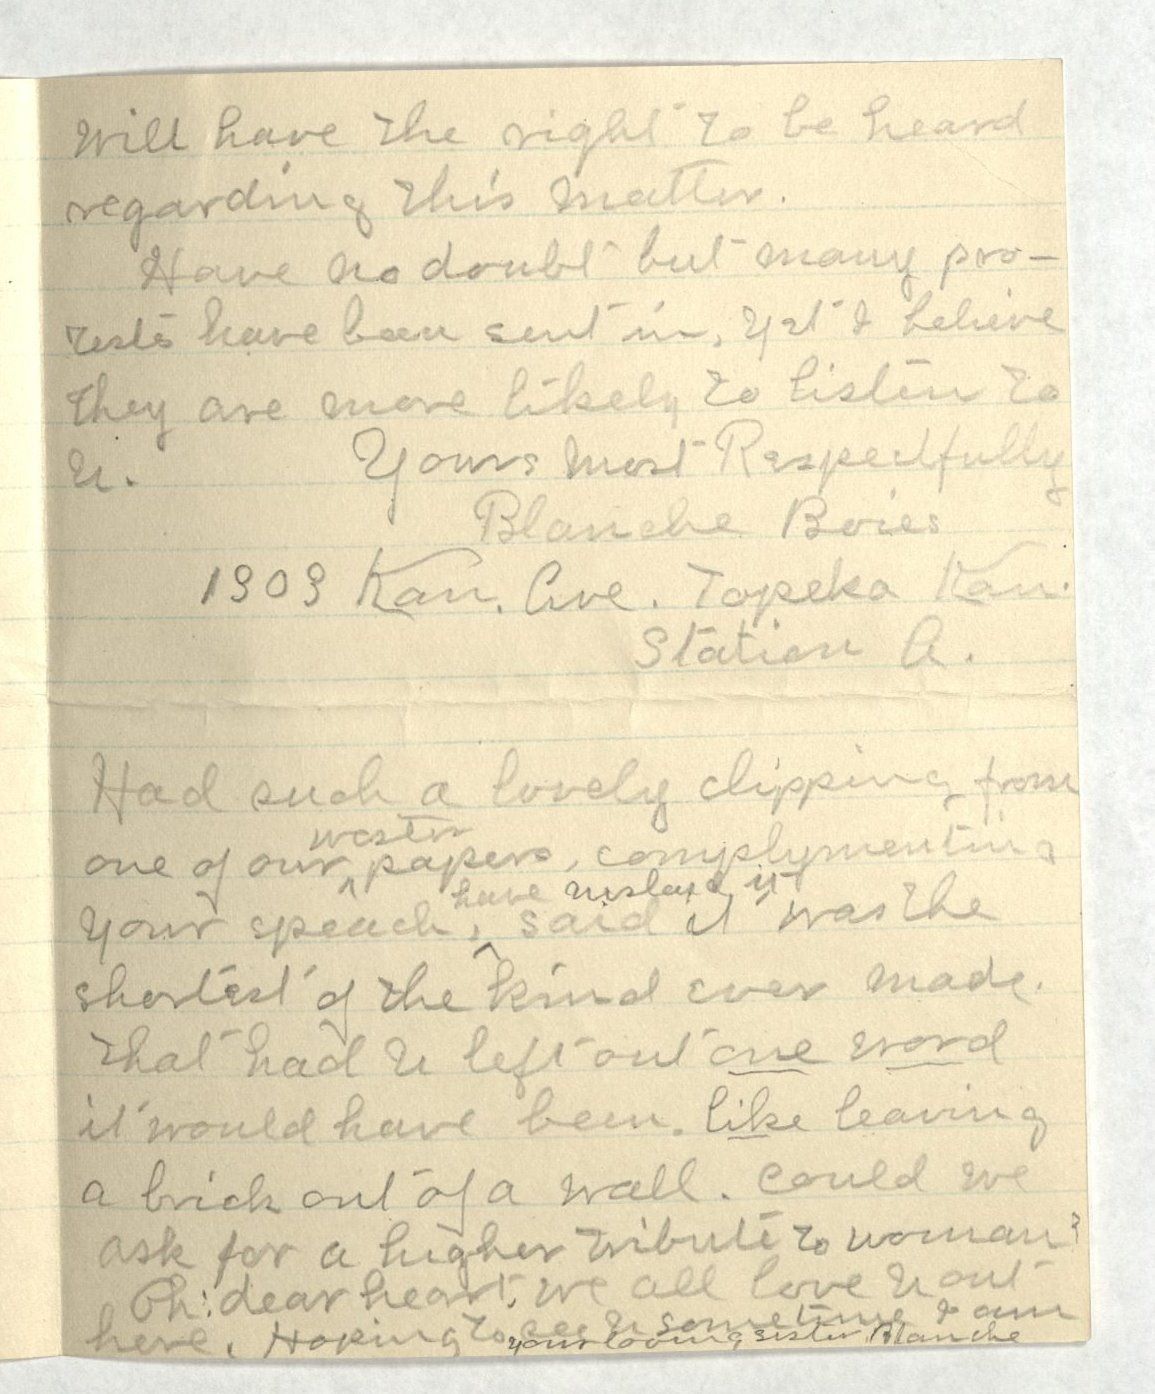 will have the right to be heard
regarding this matter.
Have no doubt but many pro-
tests have been sent in, yet I believe
they are more likely to listen to
u. Yours most Respectfully
Blanche Boies
1909 Kan. Ave. Topeka Kan.
Station A.
Had such a lovely clipping from
wester
one of our ^ papers, complymenting
have mislaid it
your speach, ^ said it was the
shortest of the kind ever made.
That had u left out one word
it would have been like leaving
a brick out of a wall. Could we
ask for a higher tribute to woman?
Oh! dear heart, we all love u out
here. Hoping to see u sometime I am
your loving sister Blanche